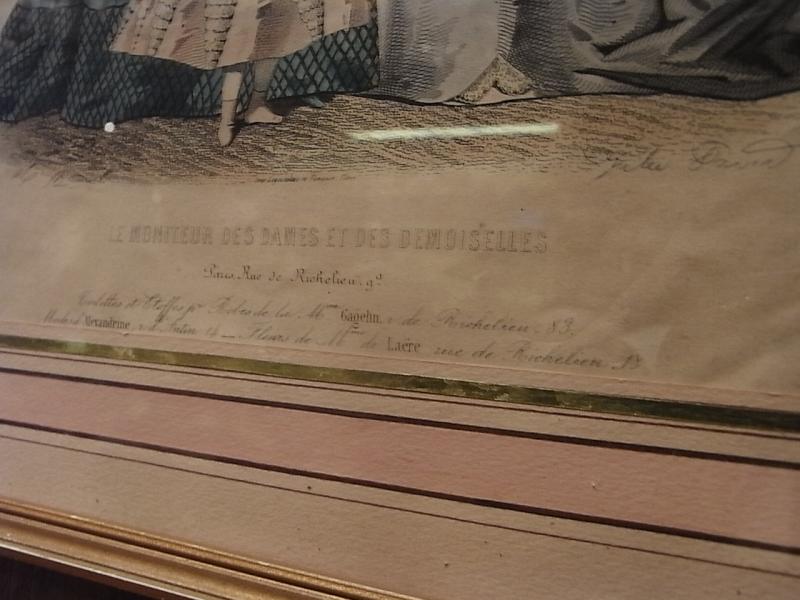 Jules David
LE MONITEUR DES DAMES ET DES DEMOISELLES
Paris, Rue de Richelieu, 92
Toilettes et Étoffes pr Robes de la Mon Gagelin, r. de Richelieu, 83.
Modes d'Alexandrine, r. d'Antin 14 — Fleurs de Mme de Laëre rue de Richelieu